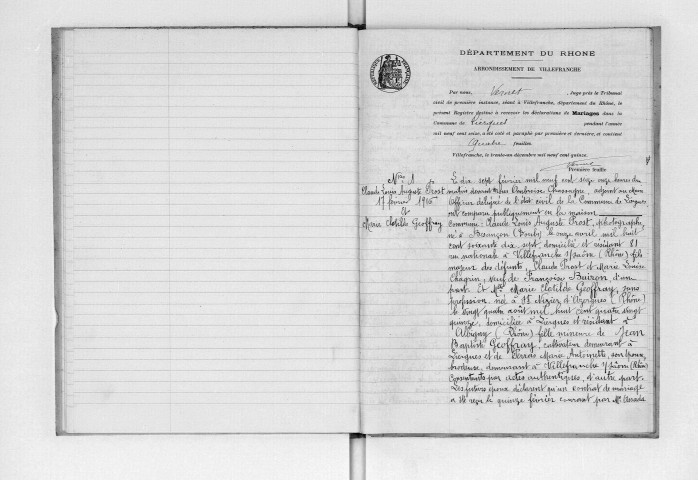 DÉPARTEMENT DU RHONE
ARRONDISSEMENT DE VILLEFRANCHE
Par nous, Vernet, Juge près le Tribunal
civil de première instance, séant à Villefranche, département du Rhône, le
présent Registre destiné à recevoir les déclarations de Mariages dans la
Commune de Liergues pendant l'année
mil neuf cent seize, a été coté et paraphé par première et dernière, et contient
quatre feuilles
Villefranche, le trente-un décembre mil neuf cent quinze.
Première feuille
N° 1
Claude Louis Auguste Prost
17 février 1916
et
Marie Clotilde Geoffray
Le dix sept février mil neuf cent seize onze heures du
matin, devant Nous Ambroise adjoint au Maire
Officier délégué de l'état civil de la Commune de Liergues
ont comparu publiquement en la maison
Commune: Claude Louis Auguste Prost, photographe,
né à Besançon (Doubs) le onze avril mil huit
cent soixante dix sept, domicilié et résidant 81
rue nationale à Villefranche s/saône (Rhône) fils
majeur des défunts, Claude Prost et Marie Louise
Chagrin, veuf de Françoise Buiron, d'une
part. Et Mlle Marie Clotilde Geoffray, sans
profession née à St Nizier d'Azergues (Rhône)
le vingt quatre août mil huit cent quatre vingt
quinze, domiciliée à Liergues et résidant à
Albigny (Rhône) fille mineure de Jean
Baptiste Geoffray, cultivateur demeurant à
Liergues et de Perras Marie Antoinette, son épouse,
brodeuse, demeurant à Villefranche s/saône (Rhône)
Consentants par actes authentiques, d'autre part.
Les futurs époux déclarent qu'un contrat de mariage
a été reçu le quinze février courant par Me